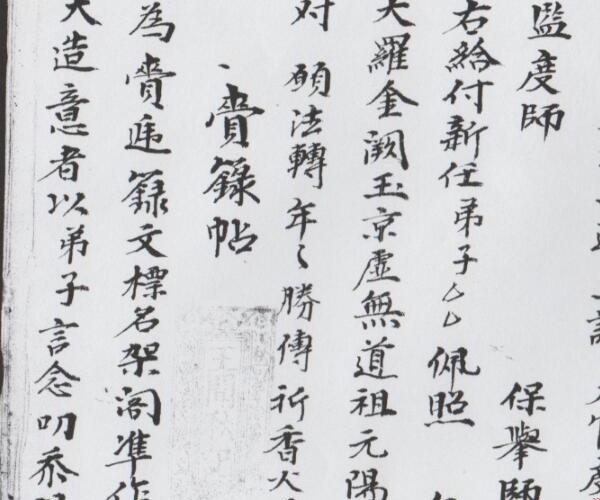 監度師　保舉師
右給付新任弟子厶厶佩照
大羅金闕玉京虛無道祖元陽
对　願法轉年〻勝傳祈香火
、賫籙帖
為賫遞籙文標名架阁準作
大造意者以弟子言念叨忝